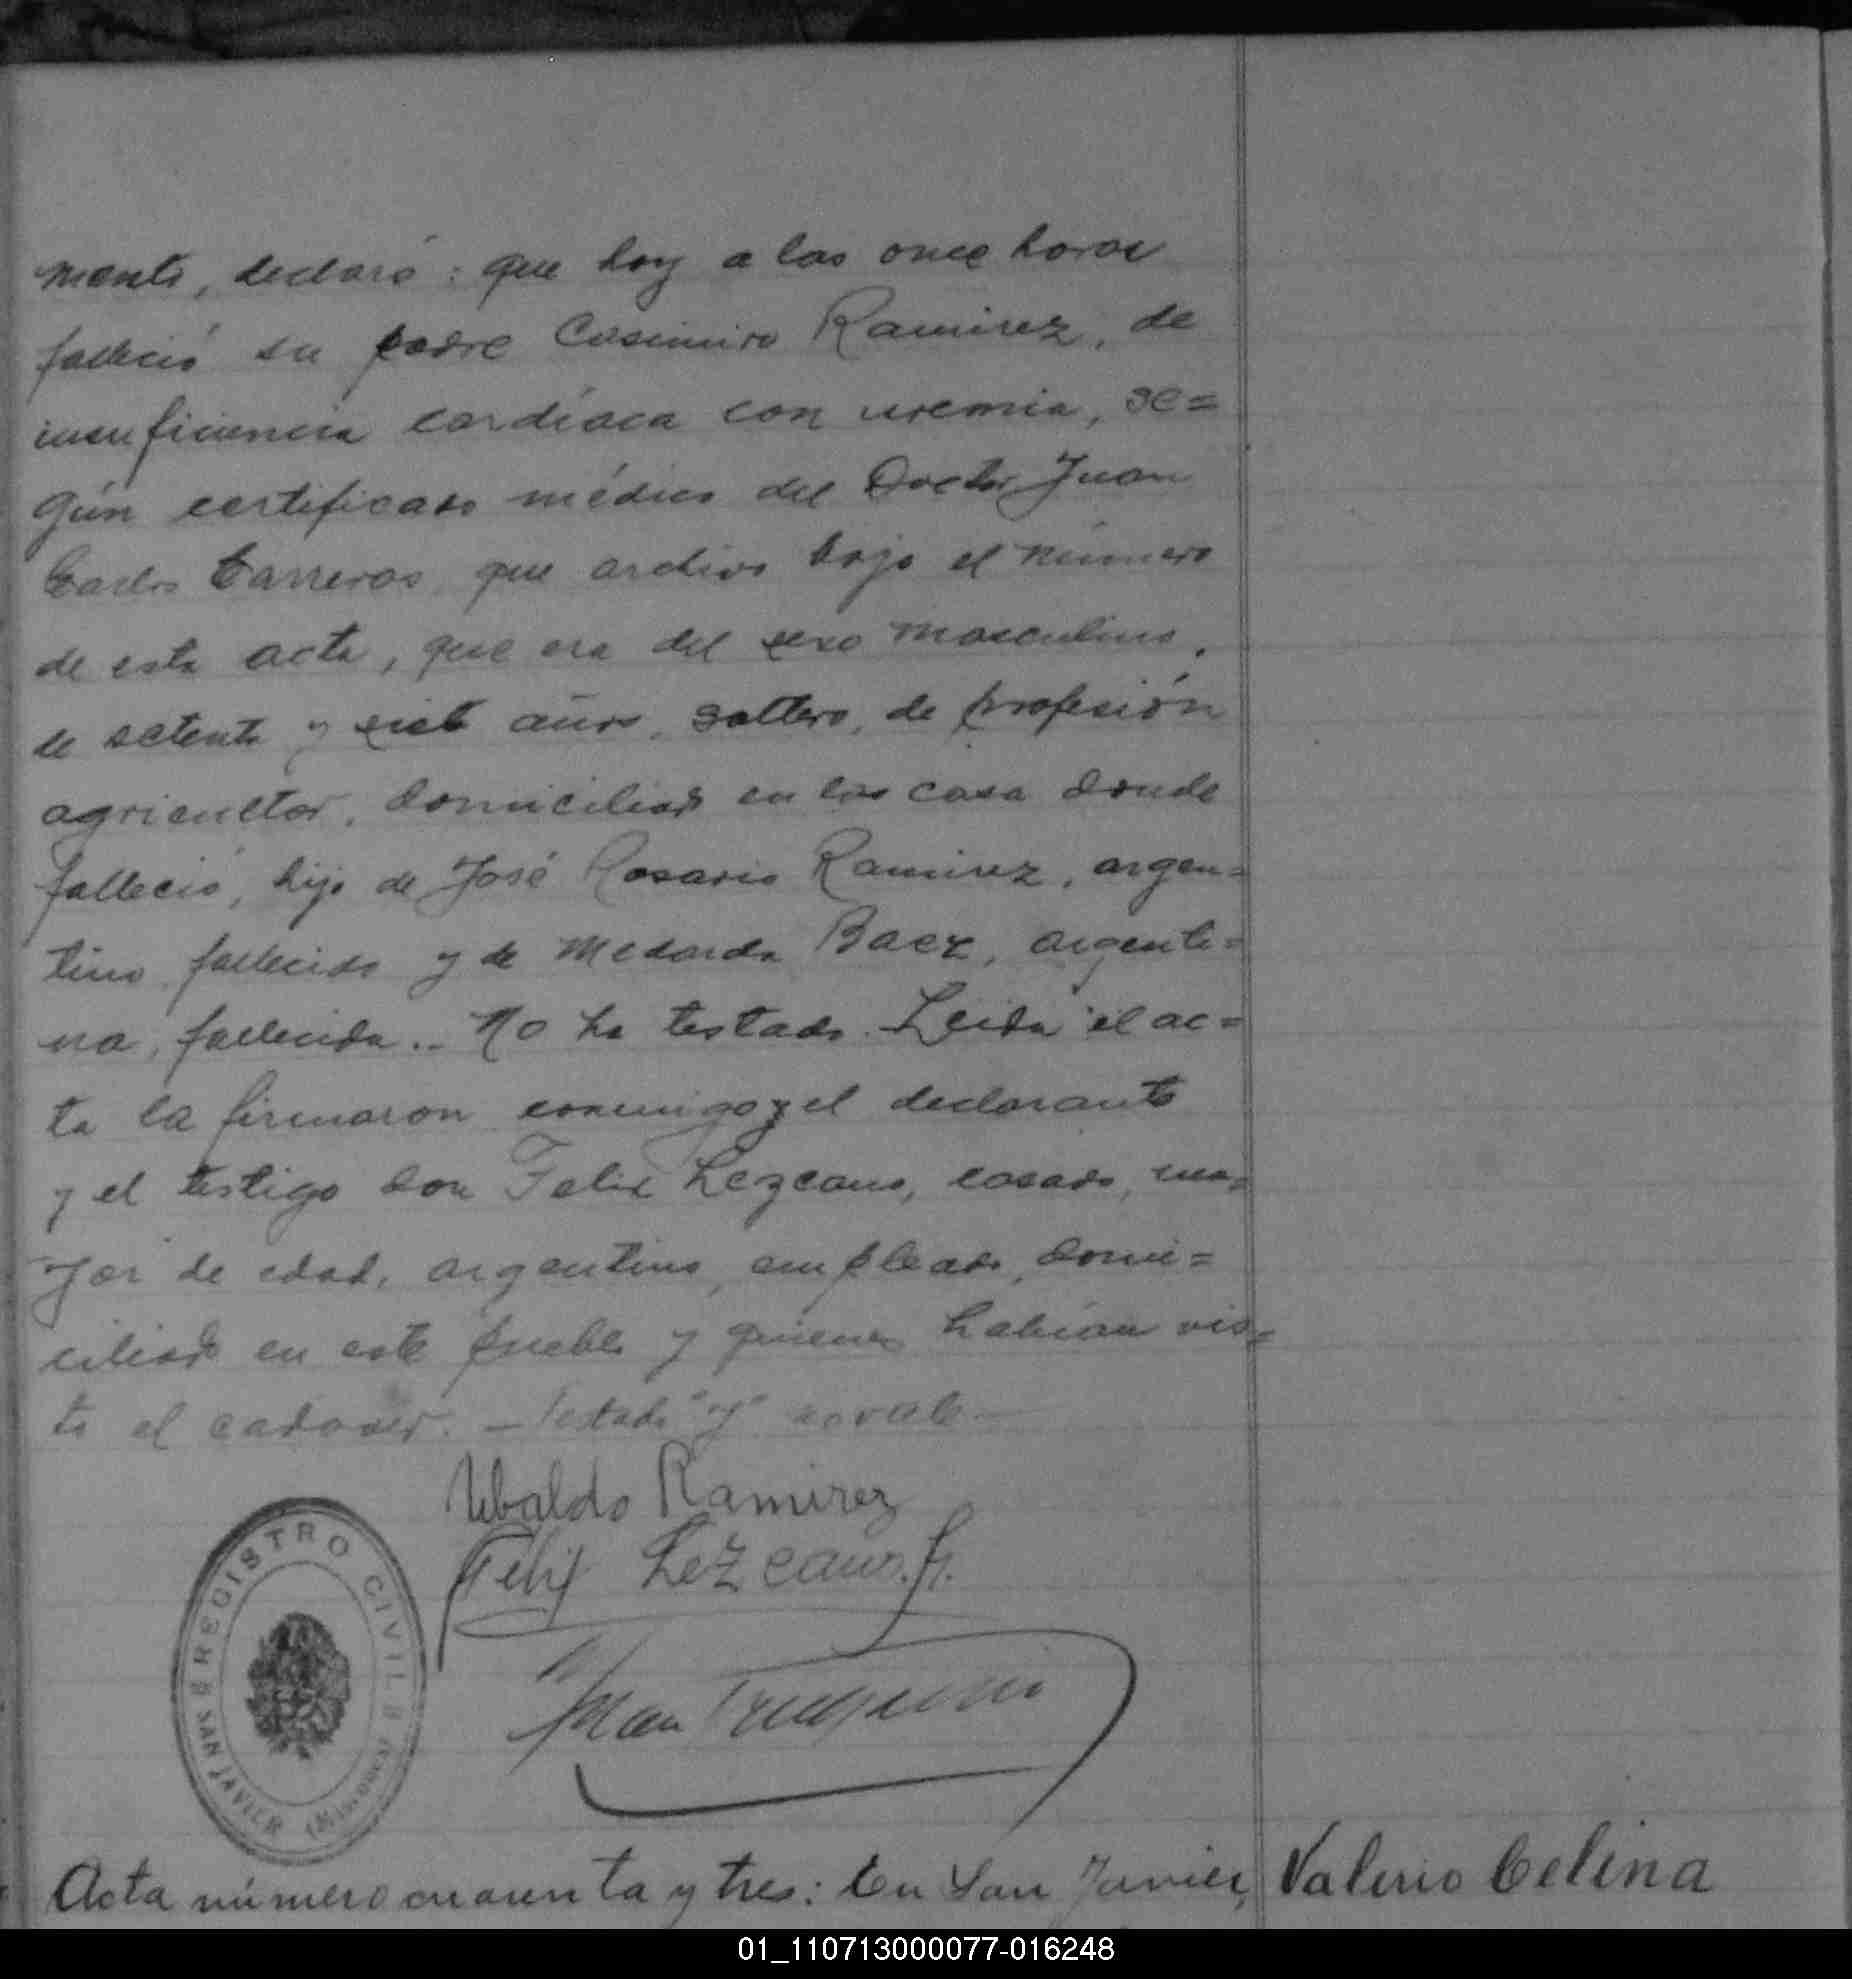 mente, declaró: que hoy a las once horas
falleció su padre Casimiro Ramirez, de
insuficiencia cardíaca con uremia, se=
gún certificado médico del Doctor Juan
Carlos Carreras, que archivo bajo el número
de esta acta, que era del sexo masculino,
de setenta y siete años, soltero, de profesión
agricultor, domiciliado en las casa donde
falleció, hijo de José Rosario Ramirez, argen=
tino, fallecido y de Medarda Baez, argenti=
na, fallecida.. No ha testado. Leida el ac=
ta la firmaron conmigo y el declarante
y el testigo don Felix Lezcano, casado, ma=
yor de edad, argentino, empleado, domi=
ciliado en este pueblo y quienes habían vis=
to el cadaver. — Testado "y" no vale —
Ubaldo Ramirez
Felix Lezcano. h.
Juan
REGISTRO CIVIL
SAN JAVIER (MISIONES)
Acta número cuarenta y tres: En San Javier,
Valerio Celina
01_110713000077-016248